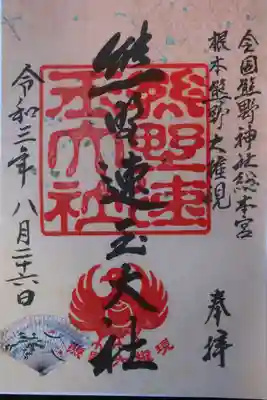 全国熊野神社総本宮
根本熊野大権現
奉拝
熊野速玉大社
熊野速玉大社
令和三年八月二十六日